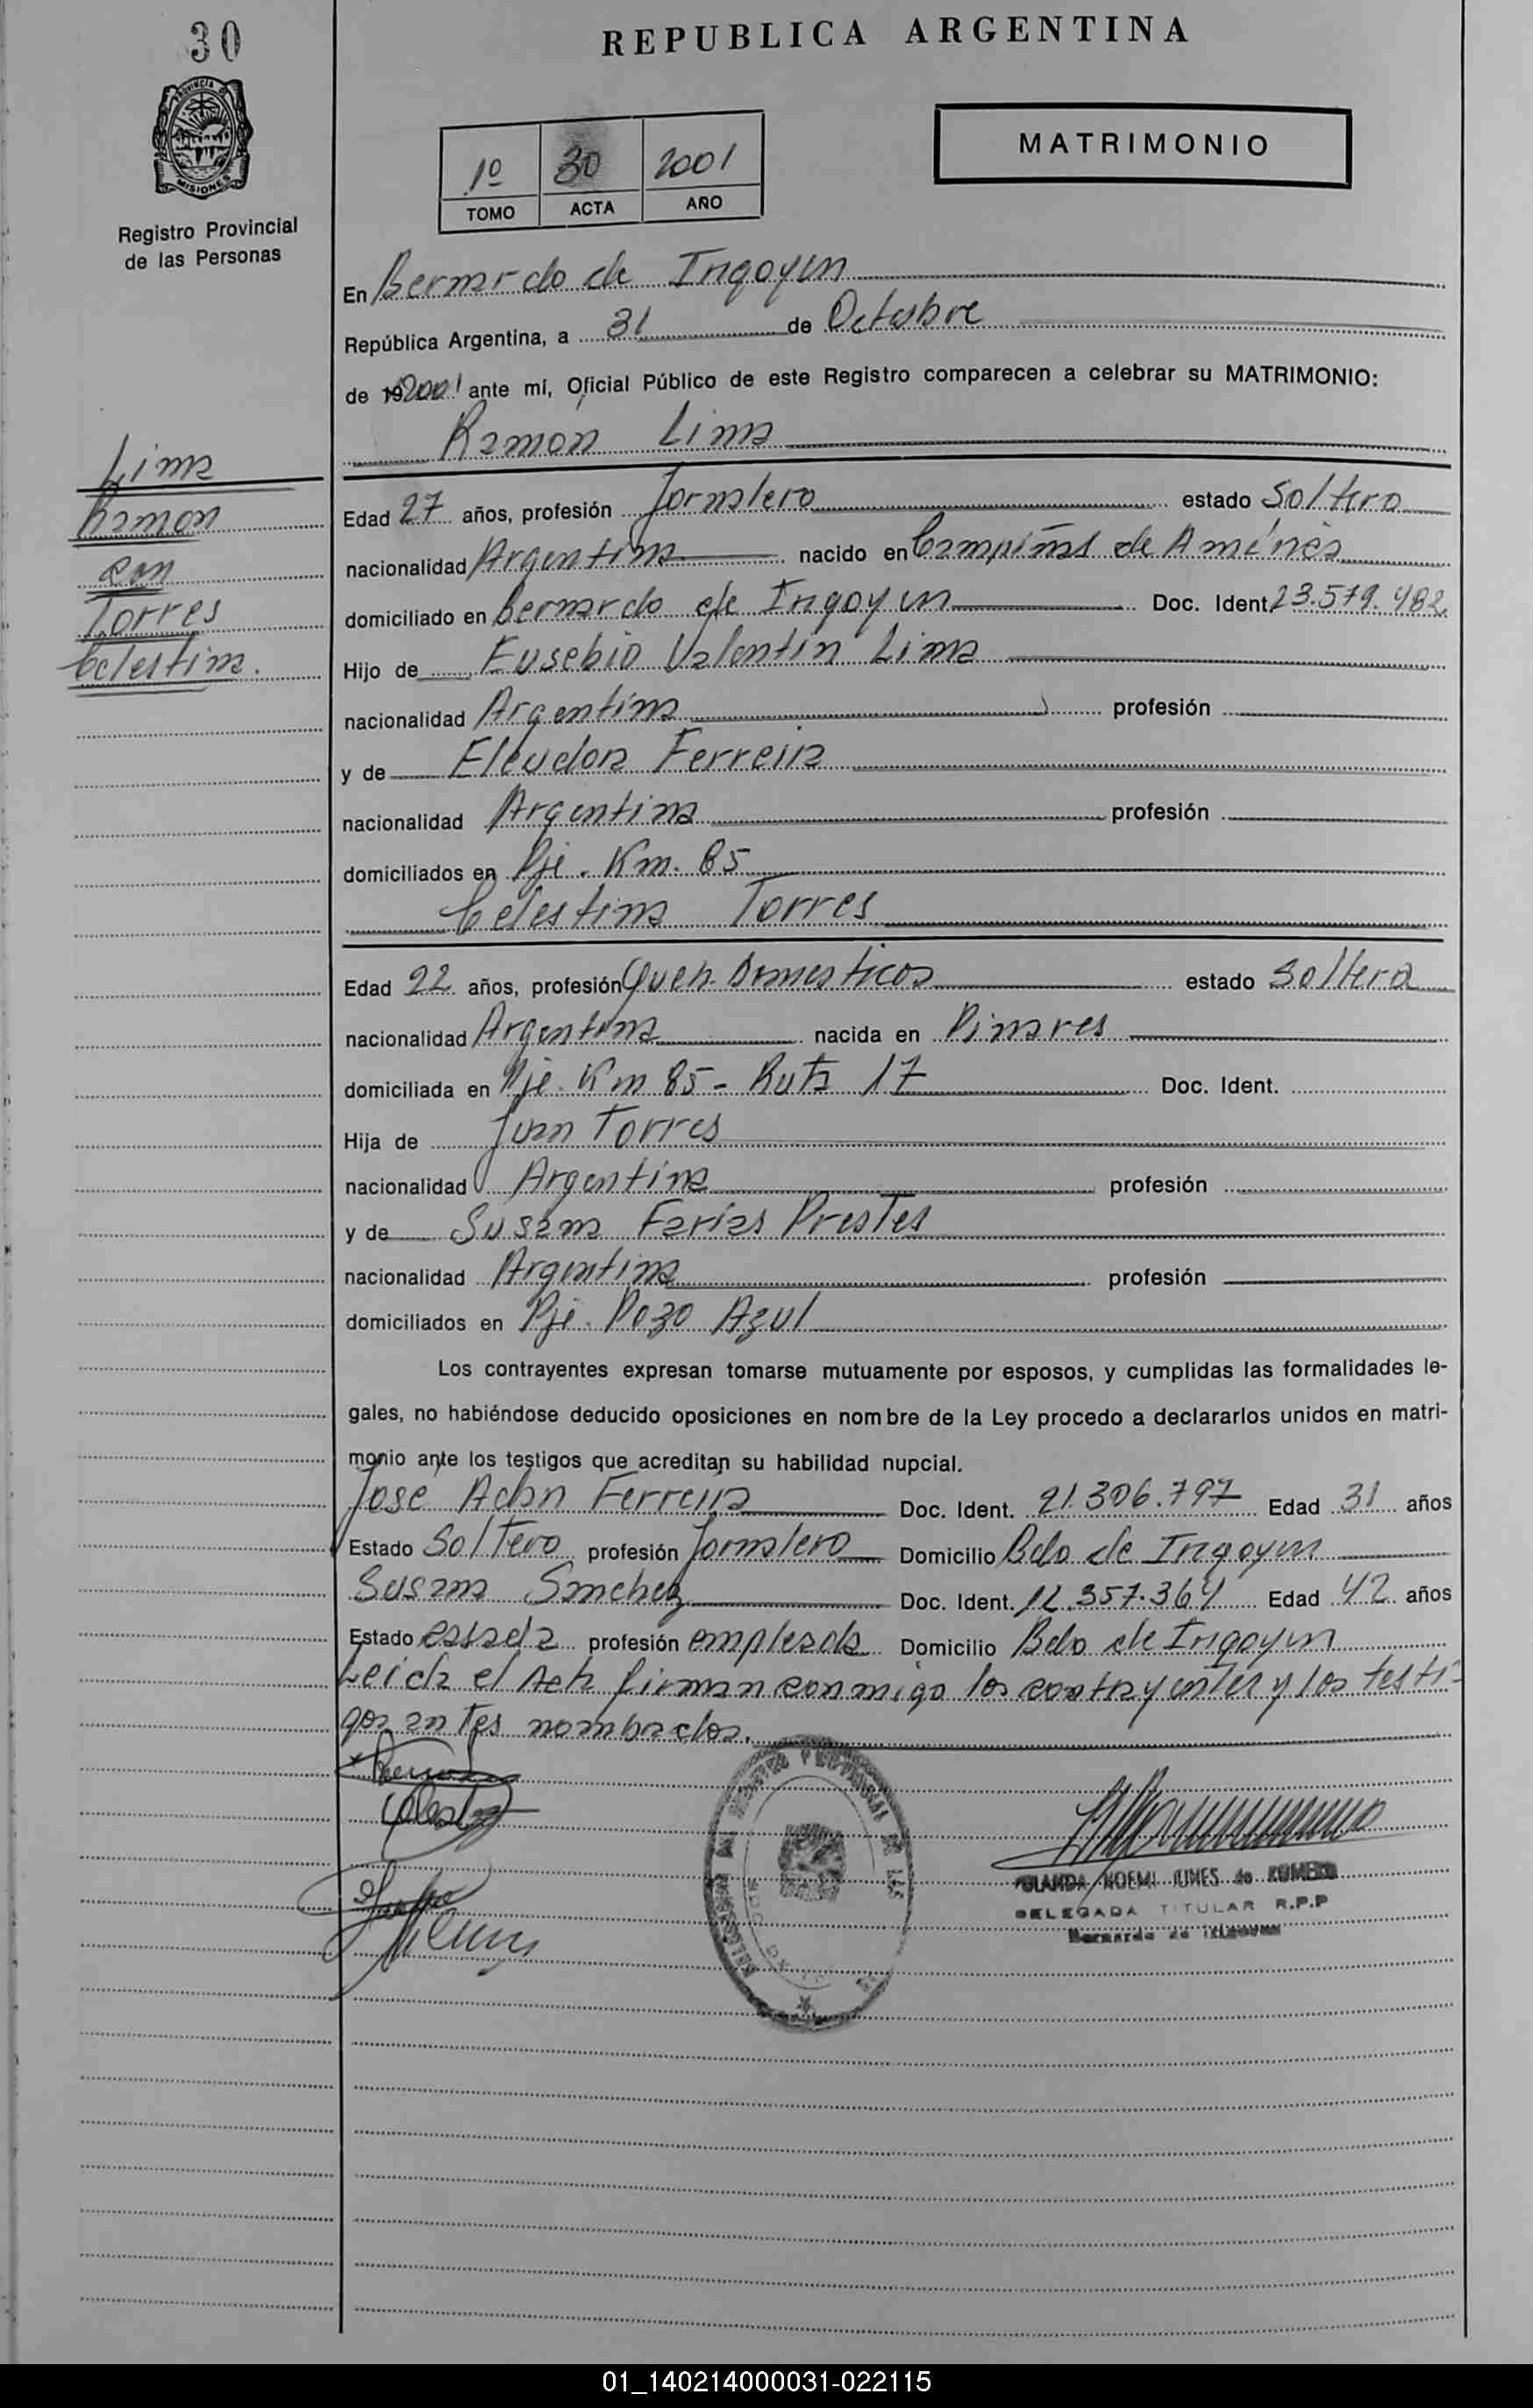 30
REPUBLICA ARGENTINA
PROVINCIA DE MISIONES
Registro Provincial
de las Personas
1º 30 2001
TOMO ACTA AÑO
MATRIMONIO
En Bernardo de Irigoyen
República Argentina, a 31 de Octubre
de 2001 ante mí, Oficial Público de este Registro comparecen a celebrar su MATRIMONIO:
Ramón Lima
Lima
Ramón
con
Torres
Celestina.
Edad 27 años, profesión Jornalero estado Soltero
nacionalidad Argentina nacido en Campiñas de Américo
domiciliado en Bernardo de Irigoyen Doc. Ident 23.579.482
Hijo de Eusebio Valentín Lima
nacionalidad Argentina profesión
y de Eleudora Ferreira
nacionalidad Argentina profesión
domiciliados en Pje. Km. 85
Celestina Torres
Edad 22 años, profesión Queh. Domesticos estado Soltera
nacionalidad Argentina nacida en Pinares
domiciliada en Pje. Km 85 - Ruta 17 Doc. Ident.
Hija de Juan Torres
nacionalidad Argentina profesión
y de Susana Farias Prestes
nacionalidad Argentina profesión
domiciliados en Pje. Pozo Azul
Los contrayentes expresan tomarse mutuamente por esposos, y cumplidas las formalidades le-
gales, no habiéndose deducido oposiciones en nombre de la Ley procedo a declararlos unidos en matri-
monio ante los testigos que acreditan su habilidad nupcial.
José Adan Ferreira Doc. Ident. 21.306.797 Edad 31 años
Estado Soltero profesión Jornalero Domicilio Bdo de Irigoyen
Susana Sanchez Doc. Ident. 12.357.364 Edad 42 años
Estado casada profesión empleada Domicilio Bdo de Irigoyen
Leida el Acta firman conmigo los contrayentes y los testi-
gos antes nombrados.
NOEMI de ROMERO
DELEGADA TITULAR R.P.P
Bernardo de Irigoyen
01_140214000031-022115